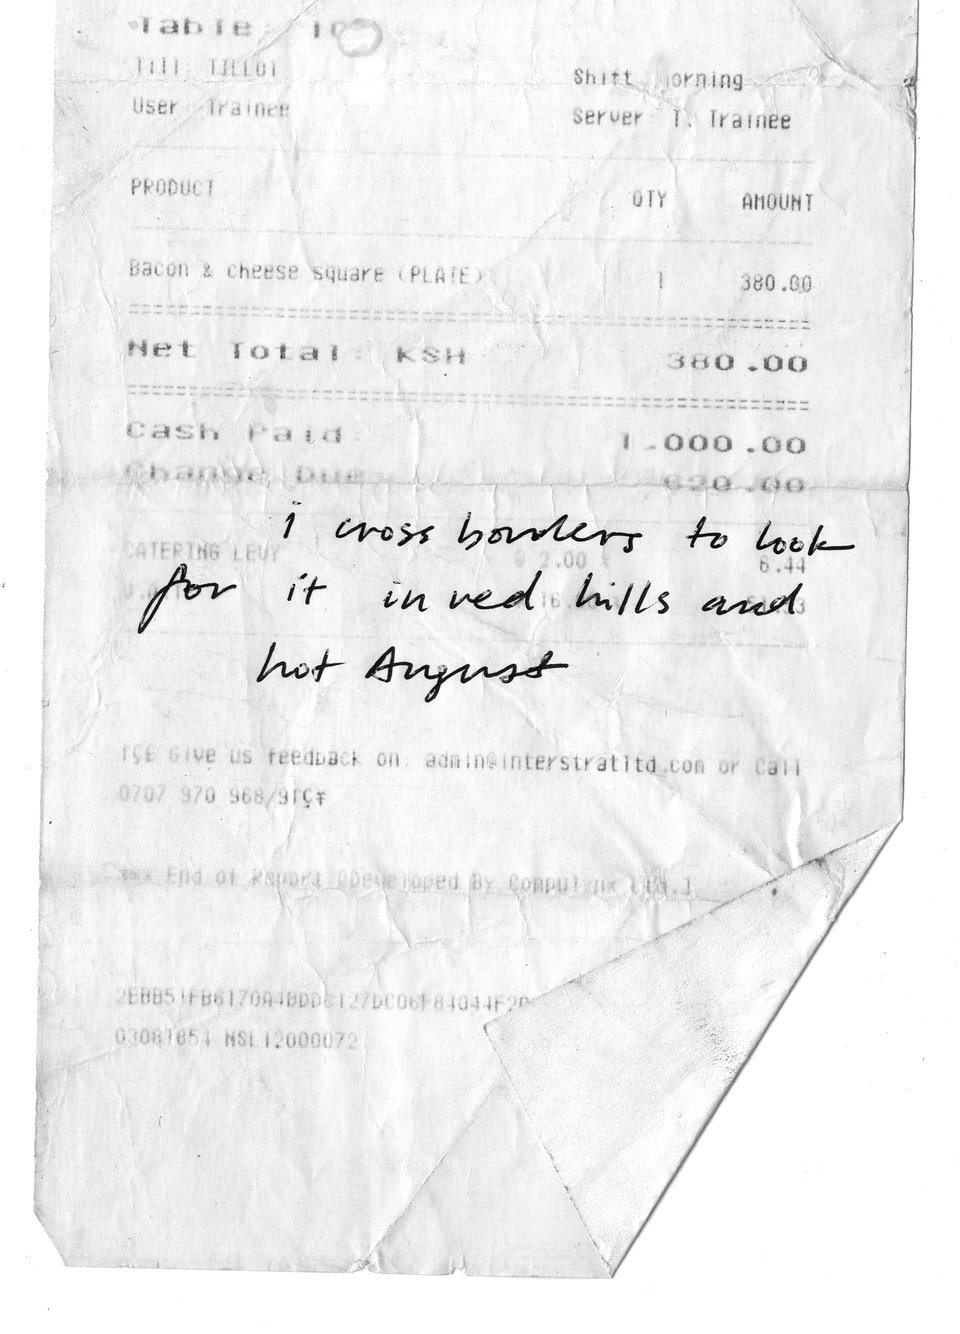 Table: 10
Till: TILL01
Shift Morning
User Trainee
Server T. Trainee
PRODUCT QTY AMOUNT
Bacon & cheese square (PLATE) 1 380.00
Net Total: KSH 380.00
Cash Paid 1,000.00
Change Due 620.00
i cross borders to look
CATERING LEVY @ 2.00 % 6.44
for it in red hills and
hot August
Give us feedback on: admin@interstratltd.com or Call
0707 970 968/9
*** End of Report [Developed By Compulynx Ltd.]
03081854